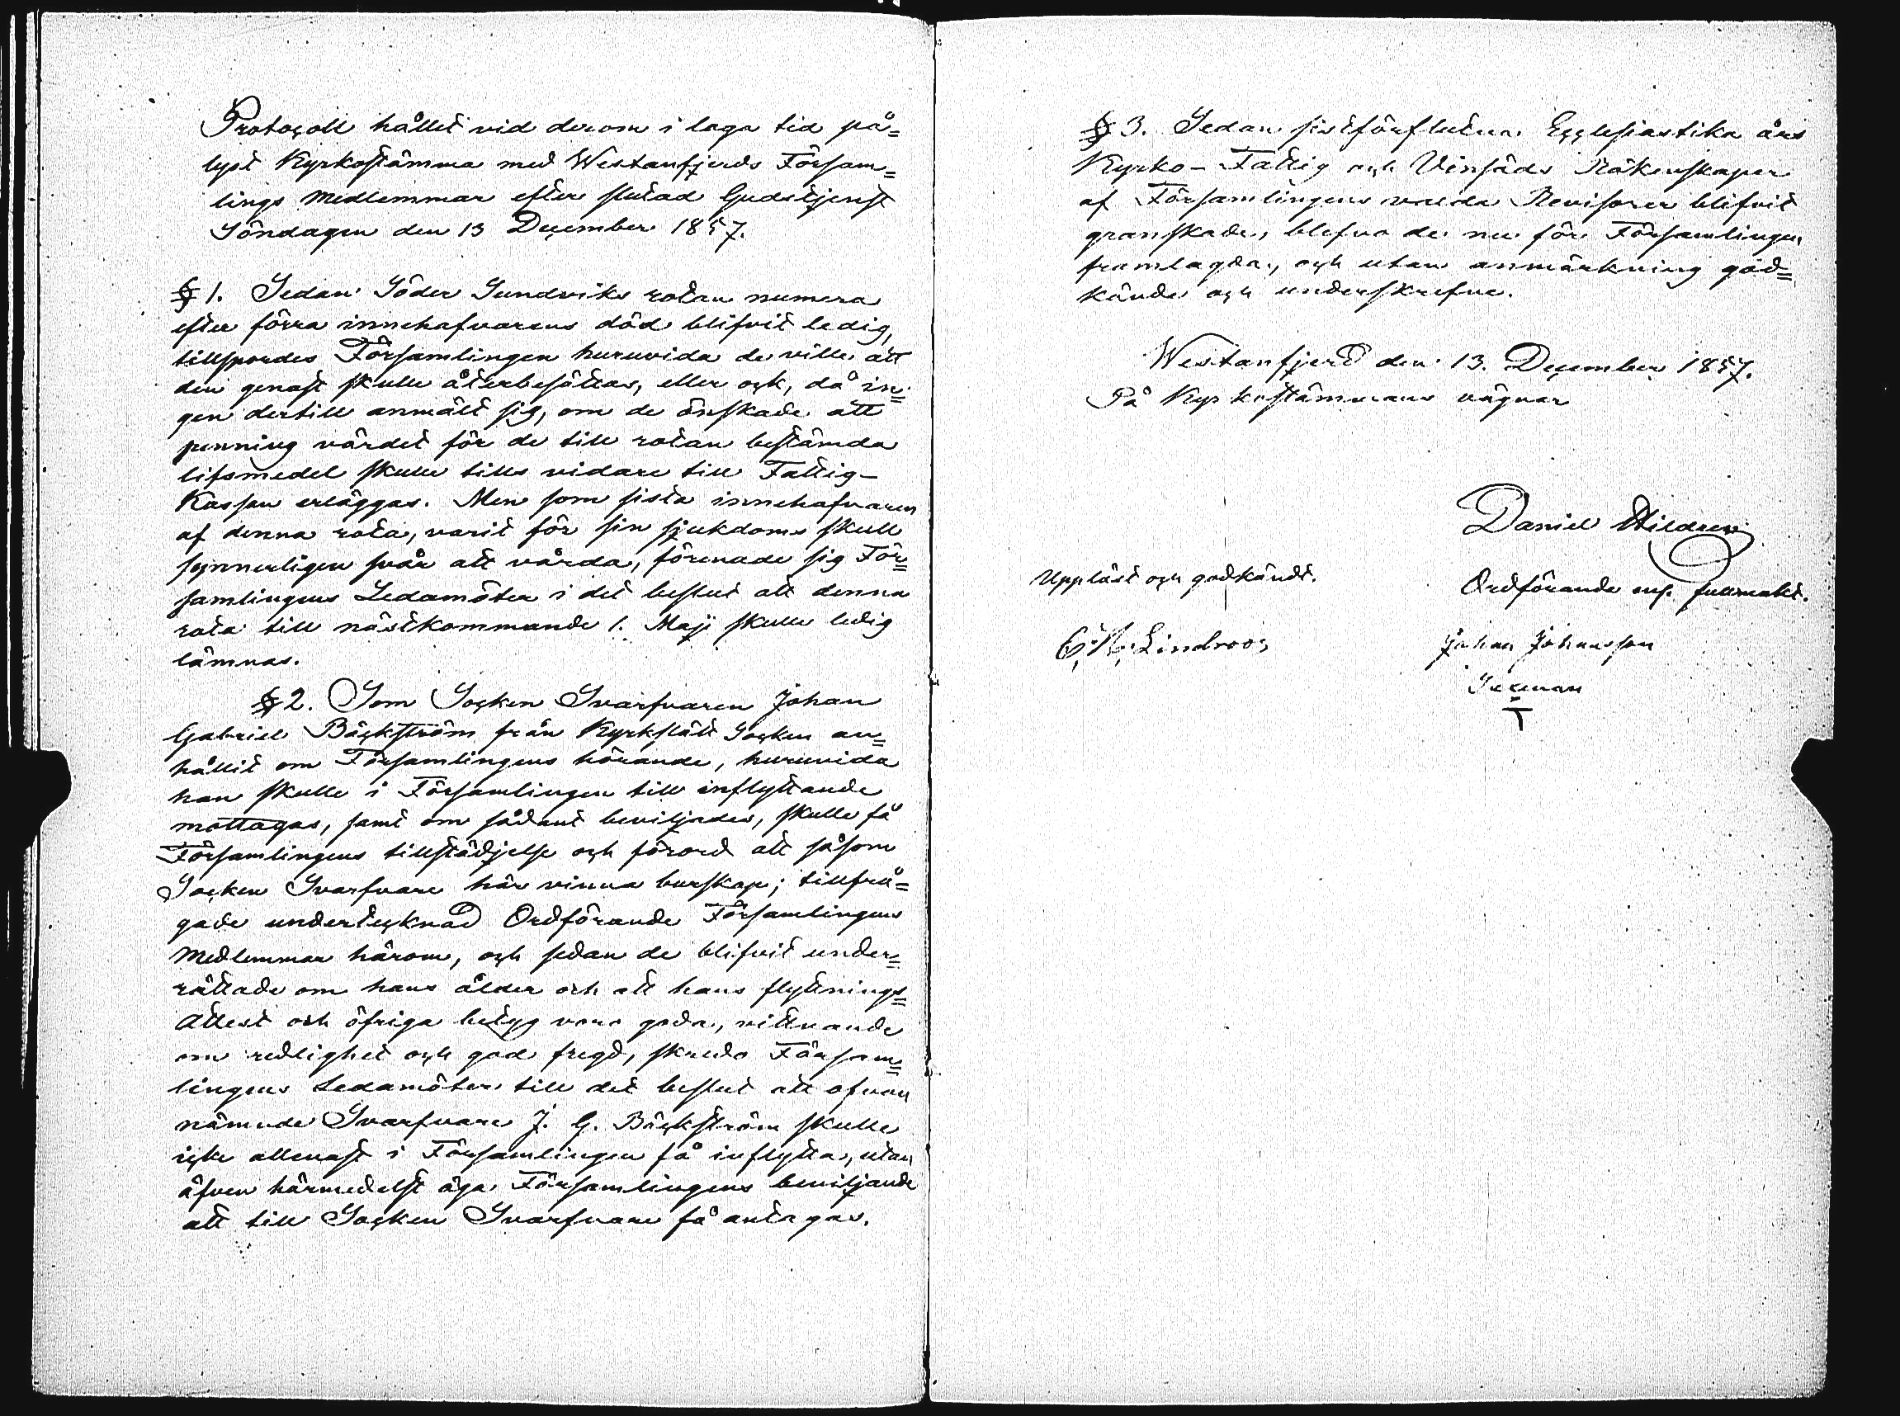 Protocoll hållet vid derom i laga tid på=
lyst Kyrkostämma med Westanfjerds Försam=
lings Medlemmar efter slutad Gudstjenst
Söndagen den 13 December 1857.
§ 1. Sedan Söder Sundviks rotan numera
efter förra innehafvarens död blifvit ledig,
tillspordes Församlingen huruvida de ville att
den genast skulle återbesättas, eller ock, då in=
gen dertill anmält sig, om de önskade att
penning värdet för de till rotan bestämda
lifsmedel skulle tills vidare till Fattig-
Kassan erläggas. Men som sista innehafvaren
af denna rota, varit för sin sjukdoms skull
synnerligen svår att vårda, förenade sig För=
samlingens Ledamöter i det beslut att denna
rota till nästkommande 1. Maji skulle ledig
lämnas.
§ 2. Som Socken Svarfvaren Johan
Gabriel Bäckström från Kyrkslätt Socken an=
hållit om Församlingens hörande, huruvida
han skulle i Församlingen till inflyttande
mottagas, samt om sådant beviljades, skulle få
Församlingens tillstädjelse och förord att såsom
Socken Svarfvare här vinna burskap; tillfrå=
gade undertecknad Ordförande Församlingens
Medlemmar härom, och sedan de blifvit under=
rättade om hans ålder och att hans flyttnings=
Attest och öfriga betyg voro goda, vittnande
om redlighet och god fregd, skredo Försam=
lingens Ledamöter till det beslut att ofvan
nämnde Svarfvare J. G. Bäckström skulle
icke allenast i Församlingen få inflytta, utan
äfven härmedelst äga Församlingens beviljande
att till Socken Svarfvare få antagas.
§ 3. Sedan sistförflutna Ecclesiastika års
Kyrko- Fattig och Vinsäds Räkenskaper
af Församlingens valda Revisorer blifvit
granskade, blefvo de nu för Församlingen
framlagda, och utan anmärkning god=
kände och underskrefne.
Westanfjerd den 13. December 1857.
På Kyrkostämmans vägnar
Daniel
Uppläst och godkändt.
Ordförande enl. fullmakt.
Lindroos
Johan Johansson